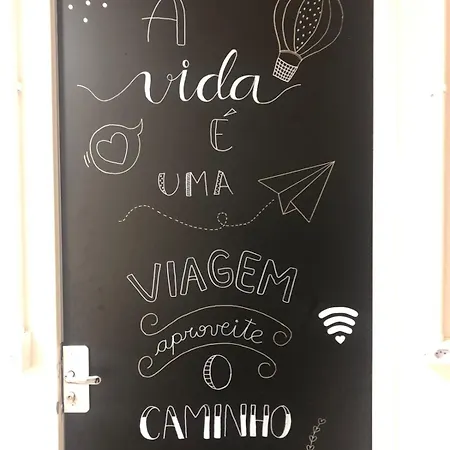 A
vida
É
UMA
VIAGEM
aproveite
O
CAMINHO